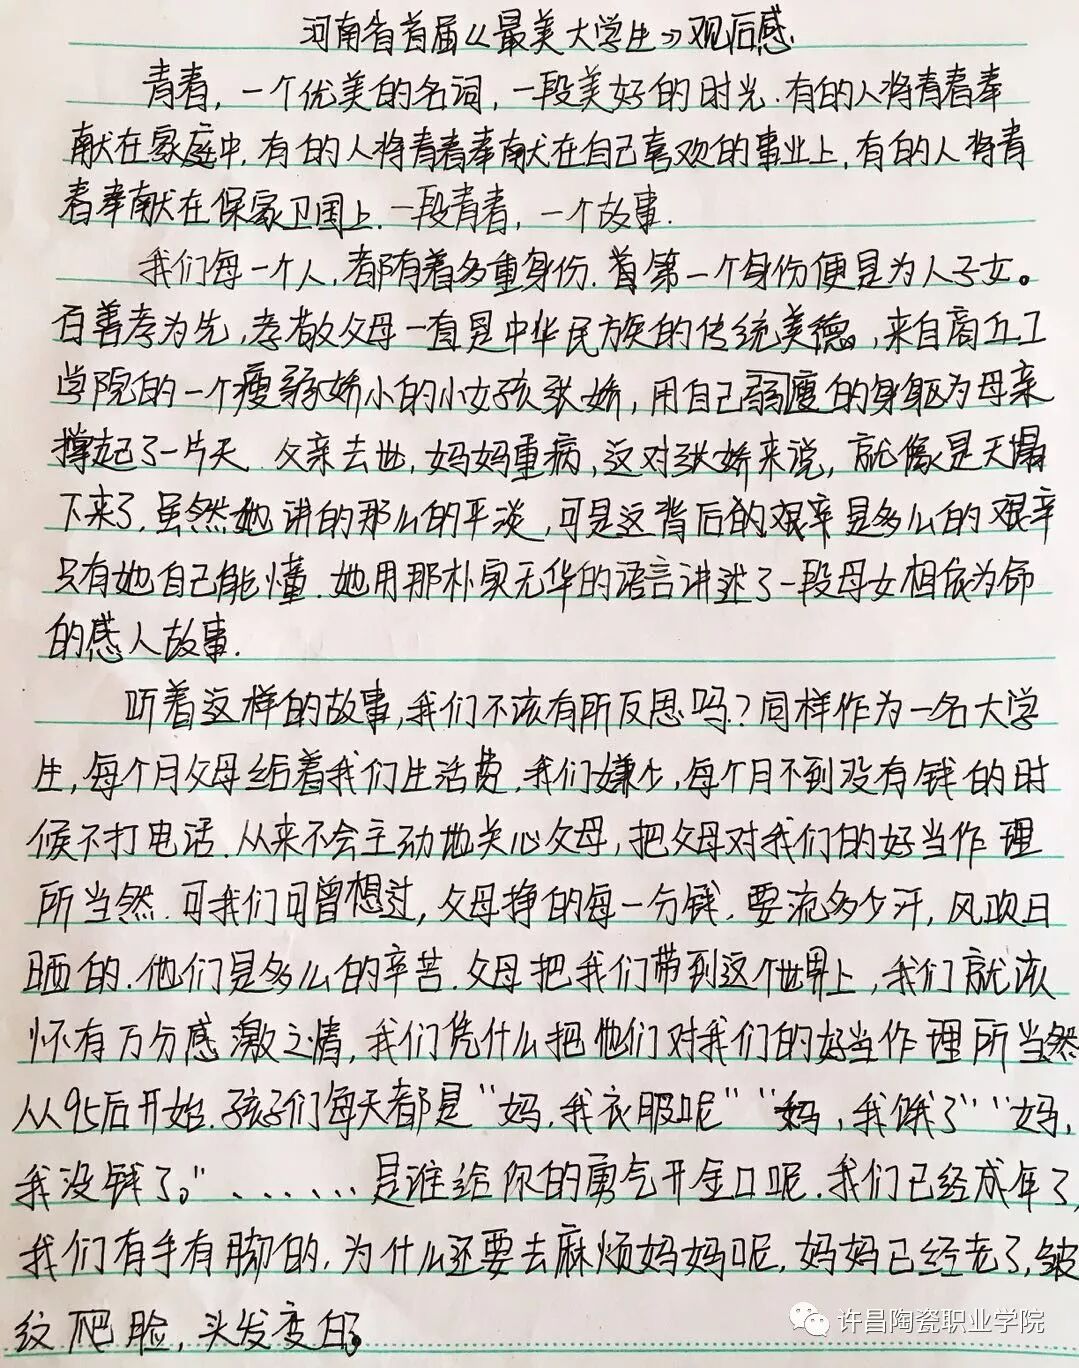 河南省首届《最美大学生》观后感.
青春,一个优美的名词,一段美好的时光.有的人将青春奉
献在家庭中.有的人将青春奉献在自己喜欢的事业上,有的人将青
春奉献在保家卫国上.一段青春,一个故事.
我们每一个人,都有着多重身份.首第一个身份便是为人子女。
百善孝为先,孝敬父母一直是中华民族的传统美德。,来自商丘工
学院的一个瘦弱娇小的小女孩张娇,用自己弱瘦的身躯为母亲
撑起了一片天.父亲去世,妈妈重病,这对张娇来说,就像是天塌
下来了.虽然她讲的那么的平淡,可是这背后的艰辛是多么的艰辛
只有她自己能懂.她用那朴实无华的语言讲述了一段母女相依为命
的感人故事.
听着这样的故事,我们不该有所反思吗?同样作为一名大学
生,每个月父母给着我们生活费.我们嫌少,每个月不到没有钱的时
候不打电话.从来不会主动地关心父母,把父母对我们的好当作理
所当然.可我们可曾想过,父母挣的每一分钱.要流多少汗,风吹日
晒的.他们是多么的辛苦.父母把我们带到这个世界上,我们就该
怀有万分感激之情,我们凭什么把他们对我们的好当作理所当然
从95后开始.孩子们每天都是"妈.我衣服呢""妈,我饿了""妈,
我没钱了。"......是谁给你的勇气开金口呢.我们已经成年了,
我们有手有脚的,为什么还要去麻烦妈妈呢.妈妈已经老了,皱
纹爬脸,头发变白了。
许昌陶瓷职业学院